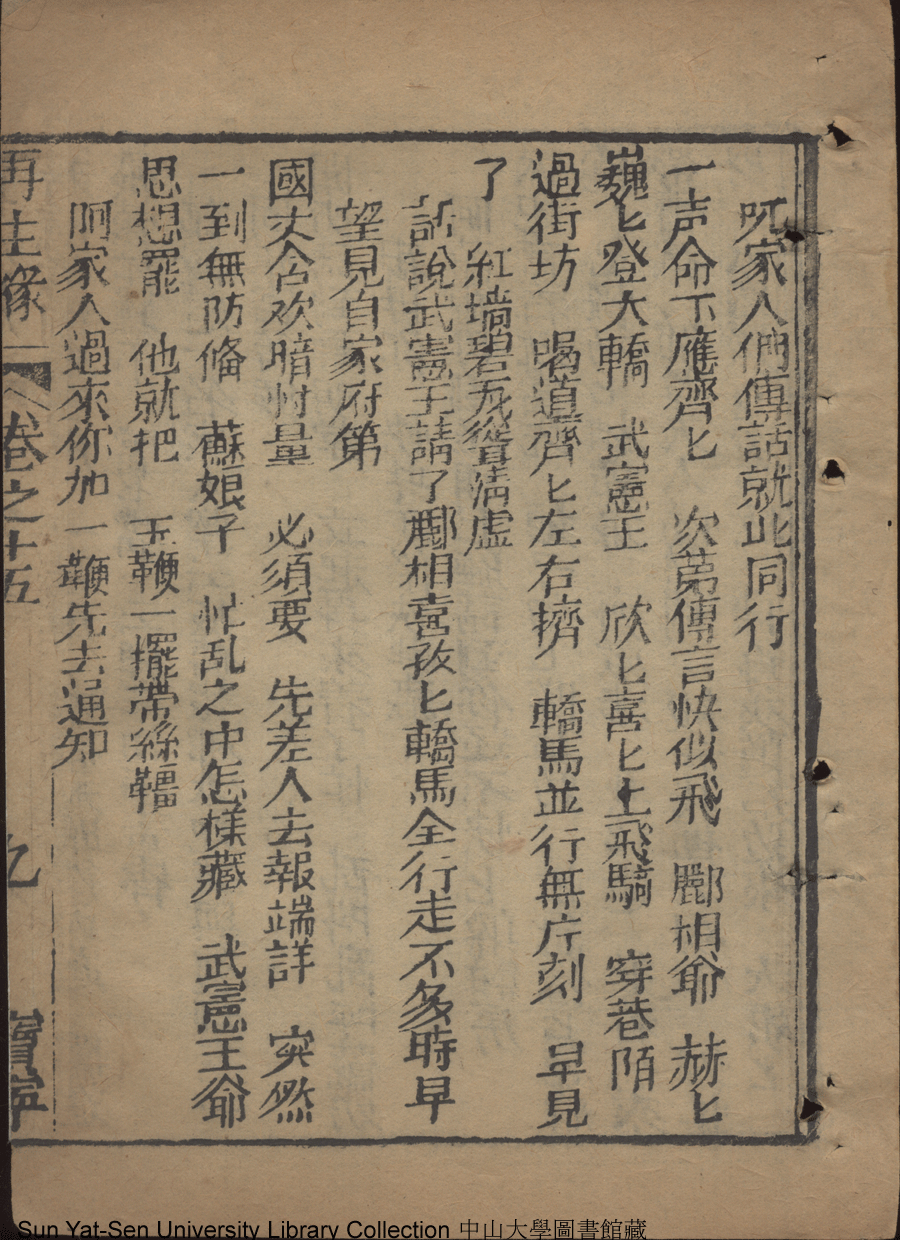 吪家人們傳話就此同行
一声命下應齊匕　次第傳言快似飛　酈相爺　赫匕
巍匕登大轎　武憲王　欣匕喜匕上飛騎　穿巷陌
過街坊　喝道齊匕左右擠　轎馬並行無片刻　早見
了　紅墻碧瓦聳清虛
話說武憲王請了酈相喜孜匕轎馬仝行走不多時早
望見自家府第
國丈合欢暗忖量　必須要　先差人去報端詳　突然
一到無防俻　蘇娘子　忙乱之中怎樣藏　武憲王爺
思想罷　他就把　玉鞭一擺帶絲韁
阿家人過來你加一鞭先去通知
再生緣　卷之十五　九　寶寧
Sun Yat-Sen University Library Collection 中山大學圖書館藏